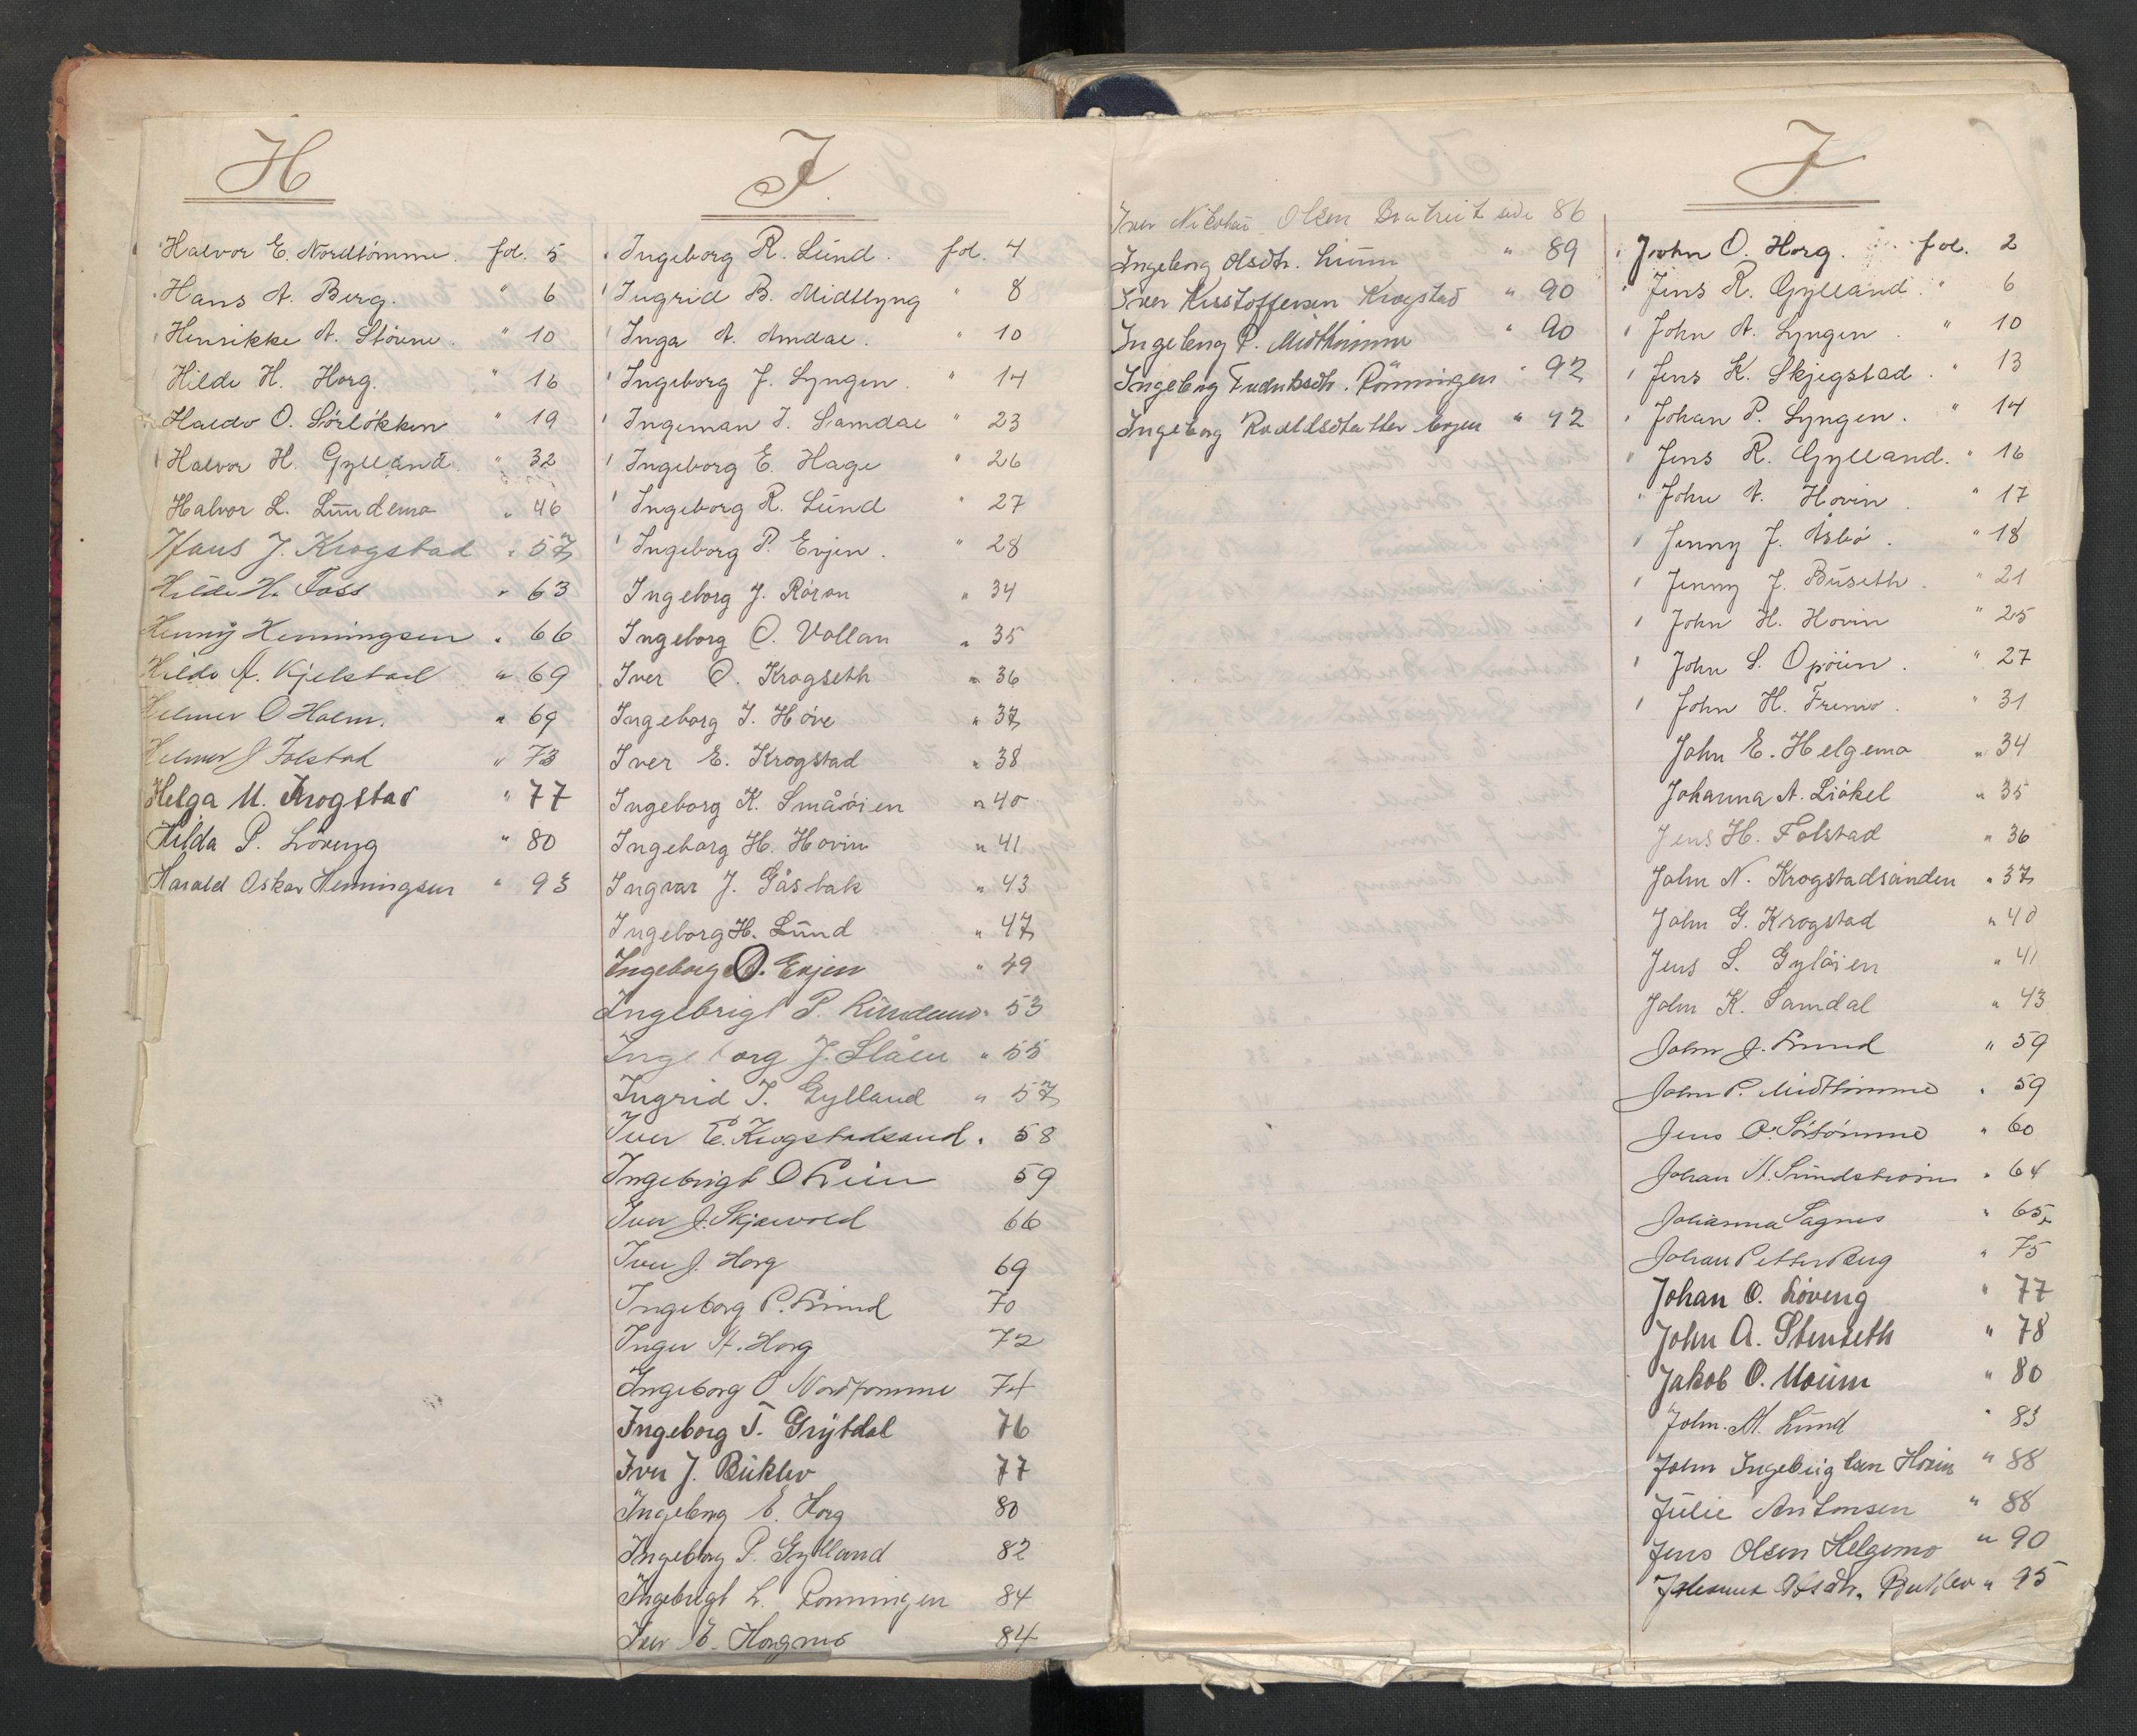 H
Halvor E. Nordtömme. fol. 5
Hans A. Berg. " 6
Henrikke A. Störene. " 10
Hilde H. Horg. " 16
Haldo O. Sörlökken " 19
Halvor H. Gylland. " 32
Halvor L. Lundemo " 46
Hans J. Krogstad " 57
Hilde H. Foss " 63
Henny Henningsen " 66
Hilda A. Kjelstad " 69
Helmer O Holm. " 69
Helmer J Folstad " 73
Helga M. Krogstad " 77
Hilda P. Löveng " 80
Harald Oskar Henningsen " 93
I.
Ingeborg R. Lund. fol. 4
Ingrid B. Midtlyng " 8
Inga A. Amdal. " 10
Ingeborg J. Lyngen. " 14
Ingeman I. Samdal " 23
Ingeborg E. Hage " 26
Ingeborg R. Lund " 27
Ingeborg P. Evjen. " 28
Ingeborg J. Röron " 34
Ingeborg O. Vollan " 35
Iver O. Krogseth " 36
Ingeborg I. Hove " 37
Iver E. Krogstad " 38
Ingeborg K. Småöien " 40
Ingeborg H. Hovin " 41
Ingvar J. Gåsbak " 43
Ingeborg H. Lund " 47
Ingeborg O. Evjen " 49
Ingebrigt P. Lundemo " 53
Ingeborg J. Slåen " 55
Ingrid I. Gylland " 57
Iver E. Krogstadsand " 58
Ingebrigt O Lein 59
Iver J. Skjervold 66
Iver J. Horg 69
Ingeborg P. Lund 70
Inger A. Horg 72
Ingeborg O Nordtomme 74
Ingeborg T. Grytdal 76
Iver J. Buklev 77
Ingeborg E. Horg 80
Ingeborg P. Gylland 82
Ingebrigt L. Ronningen 84
Iver E. Horgmo 84
Iver Nikolai Olsen side 86
Ingeborg Olsdtr. " 89
Iver Kristoffersen Krogstad " 90
Ingeborg P. Midttömme " 90
Ingeborg Fredriksdtr. Rönningen " 92
Ingeborg evjen " 92
J
John O. Horg. fol. 2
Jens R. Gylland. " 6
John A. Lyngen. " 10
Jens K. Skjegstad. " 13
Johan P. Lyngen. " 14
Jens R. Gylland. " 16
John A. Hovin. " 17
Jenny J. Åsbö. " 18
Jenny J. Buseth. " 21
John H. Hovin " 25
John L. Opöien. " 27
John H. Fremo. " 31
John E. Helgemo " 34
Johanna A. Liökel " 35
Jens H. Folstad " 36
John N. Krogstadsanden " 37
John G. Krogstad " 40
Jens L. Gylöien " 41
John K. Samdal " 43
John J. Lund " 59
John P. Midttömme " 59
Jens P. Sörtömme " 60
Johan N. Sundström " 64
Johanna Sagnes " 65
Johan Petter Berg " 75
Johan O. Löveng " 77
John A. Stenseth " 78
Jakob O. Moum " 80
John M. Lund " 83
John Ingebrigtsen Hovin " 88
Julie Antonsen " 88
Jens Olsen Helgemo " 90
Olsdtr. Buklev " 95